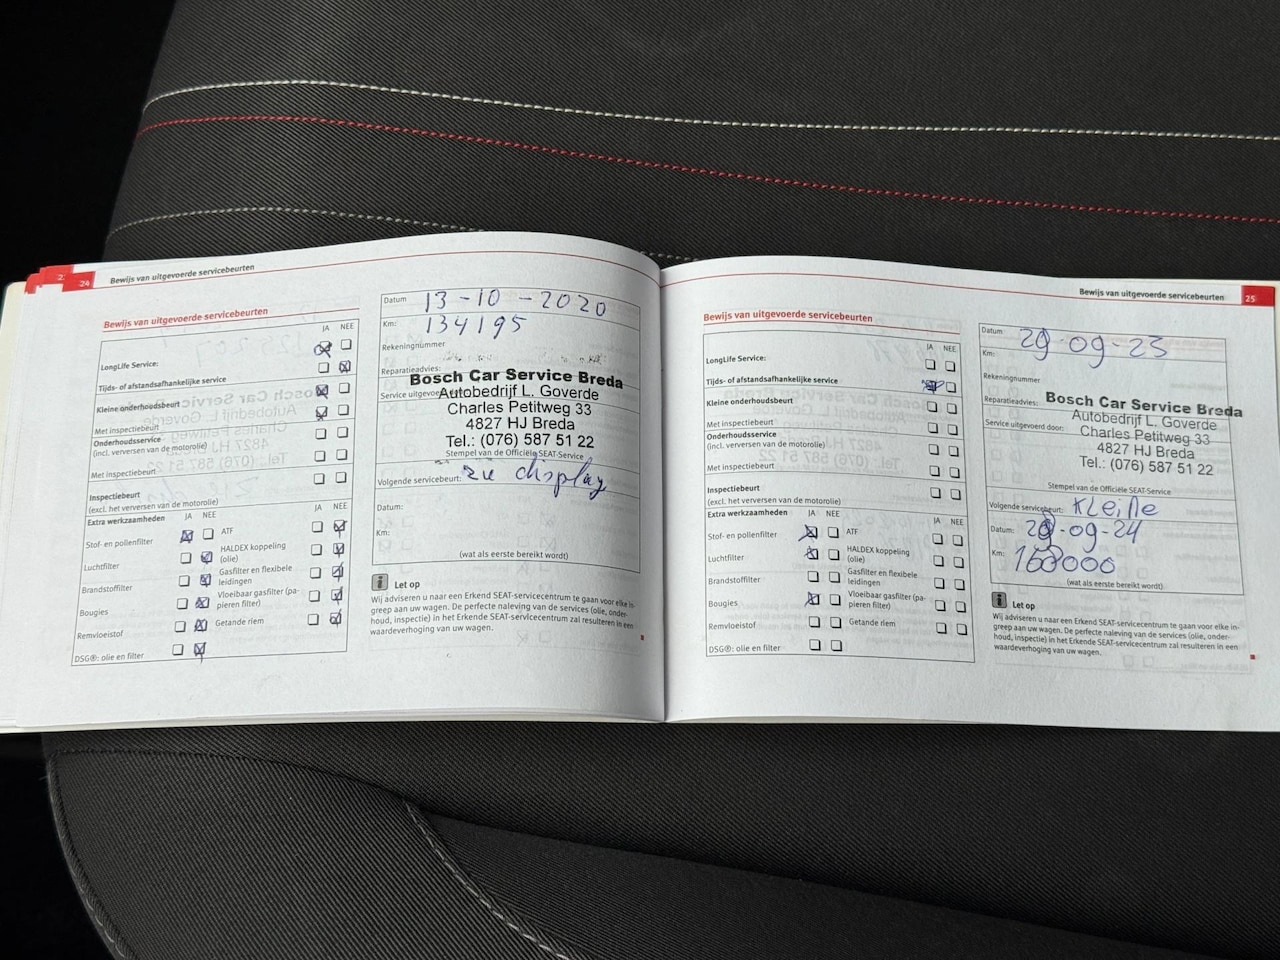 24
Bewijs van uitgevoerde servicebeurten
Bewijs van uitgevoerde servicebeurten
JA NEE
LongLife Service:
Tijds- of afstandsafhankelijke service
Kleine onderhoudsbeurt
Met inspectiebeurt
Onderhoudsservice
(incl. verversen van de motorolie)
Met inspectiebeurt
Inspectiebeurt
(excl. het verversen van de motorolie)
Extra werkzaamheden JA NEE JA NEE
Stof- en pollenfilter ATF
Luchtfilter HALDEX koppeling
(olie)
Brandstoffilter Gasfilter en flexibele
leidingen
Bougies Vloeibaar gasfilter (pa-
pieren filter)
Remvloeistof Getande riem
DSG®: olie en filter
Datum 13-10-2020
Km: 134195
Rekeningnummer
Reparatieadvies:
Bosch Car Service Breda
Service uitgevoerd
Autobedrijf L. Goverde
Charles Petitweg 33
4827 HJ Breda
Tel.: (076) 587 51 22
Stempel van de Officiële SEAT-Service
Volgende servicebeurt: zie display
Datum:
Km:
(wat als eerste bereikt wordt)
Let op
Wij adviseren u naar een Erkend SEAT-servicecentrum te gaan voor elke in-
greep aan uw wagen. De perfecte naleving van de services (olie, onder-
houd, inspectie) in het Erkende SEAT-servicecentrum zal resulteren in een
waardeverhoging van uw wagen.
Bewijs van uitgevoerde servicebeurten 25
Bewijs van uitgevoerde servicebeurten
JA NEE
LongLife Service:
Tijds- of afstandsafhankelijke service
Kleine onderhoudsbeurt
Met inspectiebeurt
Onderhoudsservice
(incl. verversen van de motorolie)
Met inspectiebeurt
Inspectiebeurt
(excl. het verversen van de motorolie)
Extra werkzaamheden JA NEE JA NEE
Stof- en pollenfilter ATF
Luchtfilter HALDEX koppeling
(olie)
Brandstoffilter Gasfilter en flexibele
leidingen
Bougies Vloeibaar gasfilter (pa-
pieren filter)
Remvloeistof Getande riem
DSG®: olie en filter
Datum: 29-09-23
Km:
Rekeningnummer
Reparatieadvies:
Bosch Car Service Breda
Autobedrijf L. Goverde
Service uitgevoerd door:
Charles Petitweg 33
4827 HJ Breda
Tel.: (076) 587 51 22
Stempel van de Officiële SEAT-Service
Volgende servicebeurt: Kleine
Datum: 29-09-24
Km: 168000
(wat als eerste bereikt wordt)
Let op
Wij adviseren u naar een Erkend SEAT-servicecentrum te gaan voor elke in-
greep aan uw wagen. De perfecte naleving van de services (olie, onder-
houd, inspectie) in het Erkende SEAT-servicecentrum zal resulteren in een
waardeverhoging van uw wagen.